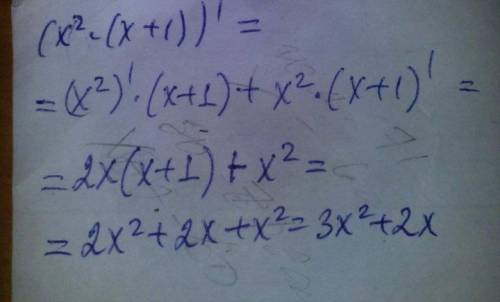 (x²·(x+1))' =
= (x²)'·(x+1) + x²·(x+1)' =
= 2x(x+1) + x² =
= 2x² + 2x + x² = 3x² + 2x